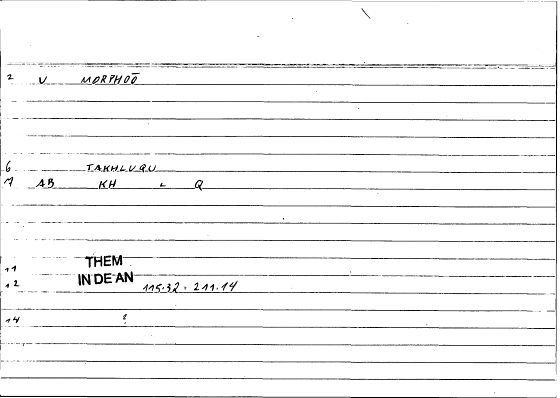 2 V MORPHOŌ
6 TAKHLUQU
7 AB KH L Q
11 THEM
12 IN DE AN 115.32 = 211.14
14 ?